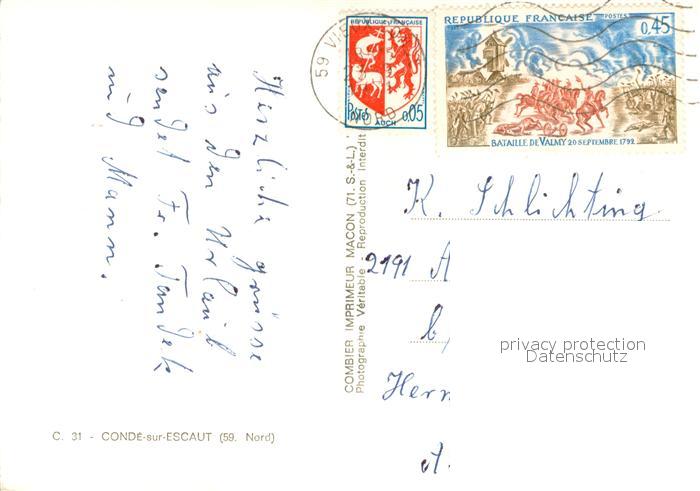 Herzliche Grüsse
aus den Urlaub
sendet Fr.
und Mann.
C. 31 - CONDÉ-sur-ESCAUT (59. Nord)
COMBIER IMPRIMEUR MACON (71. S.-&-L.)
Photographie Véritable - Reproduction Interdit
59 VIE
NORD
REPUBLIQUE FRANÇAISE
POSTES 0,05
AUCH
REPUBLIQUE FRANÇAISE POSTES 0,45
BATAILLE DE VALMY 20 SEPTEMBRE 1792
K. Schlichting
2191 A
b,
Herr
A.
privacy protection
Datenschutz